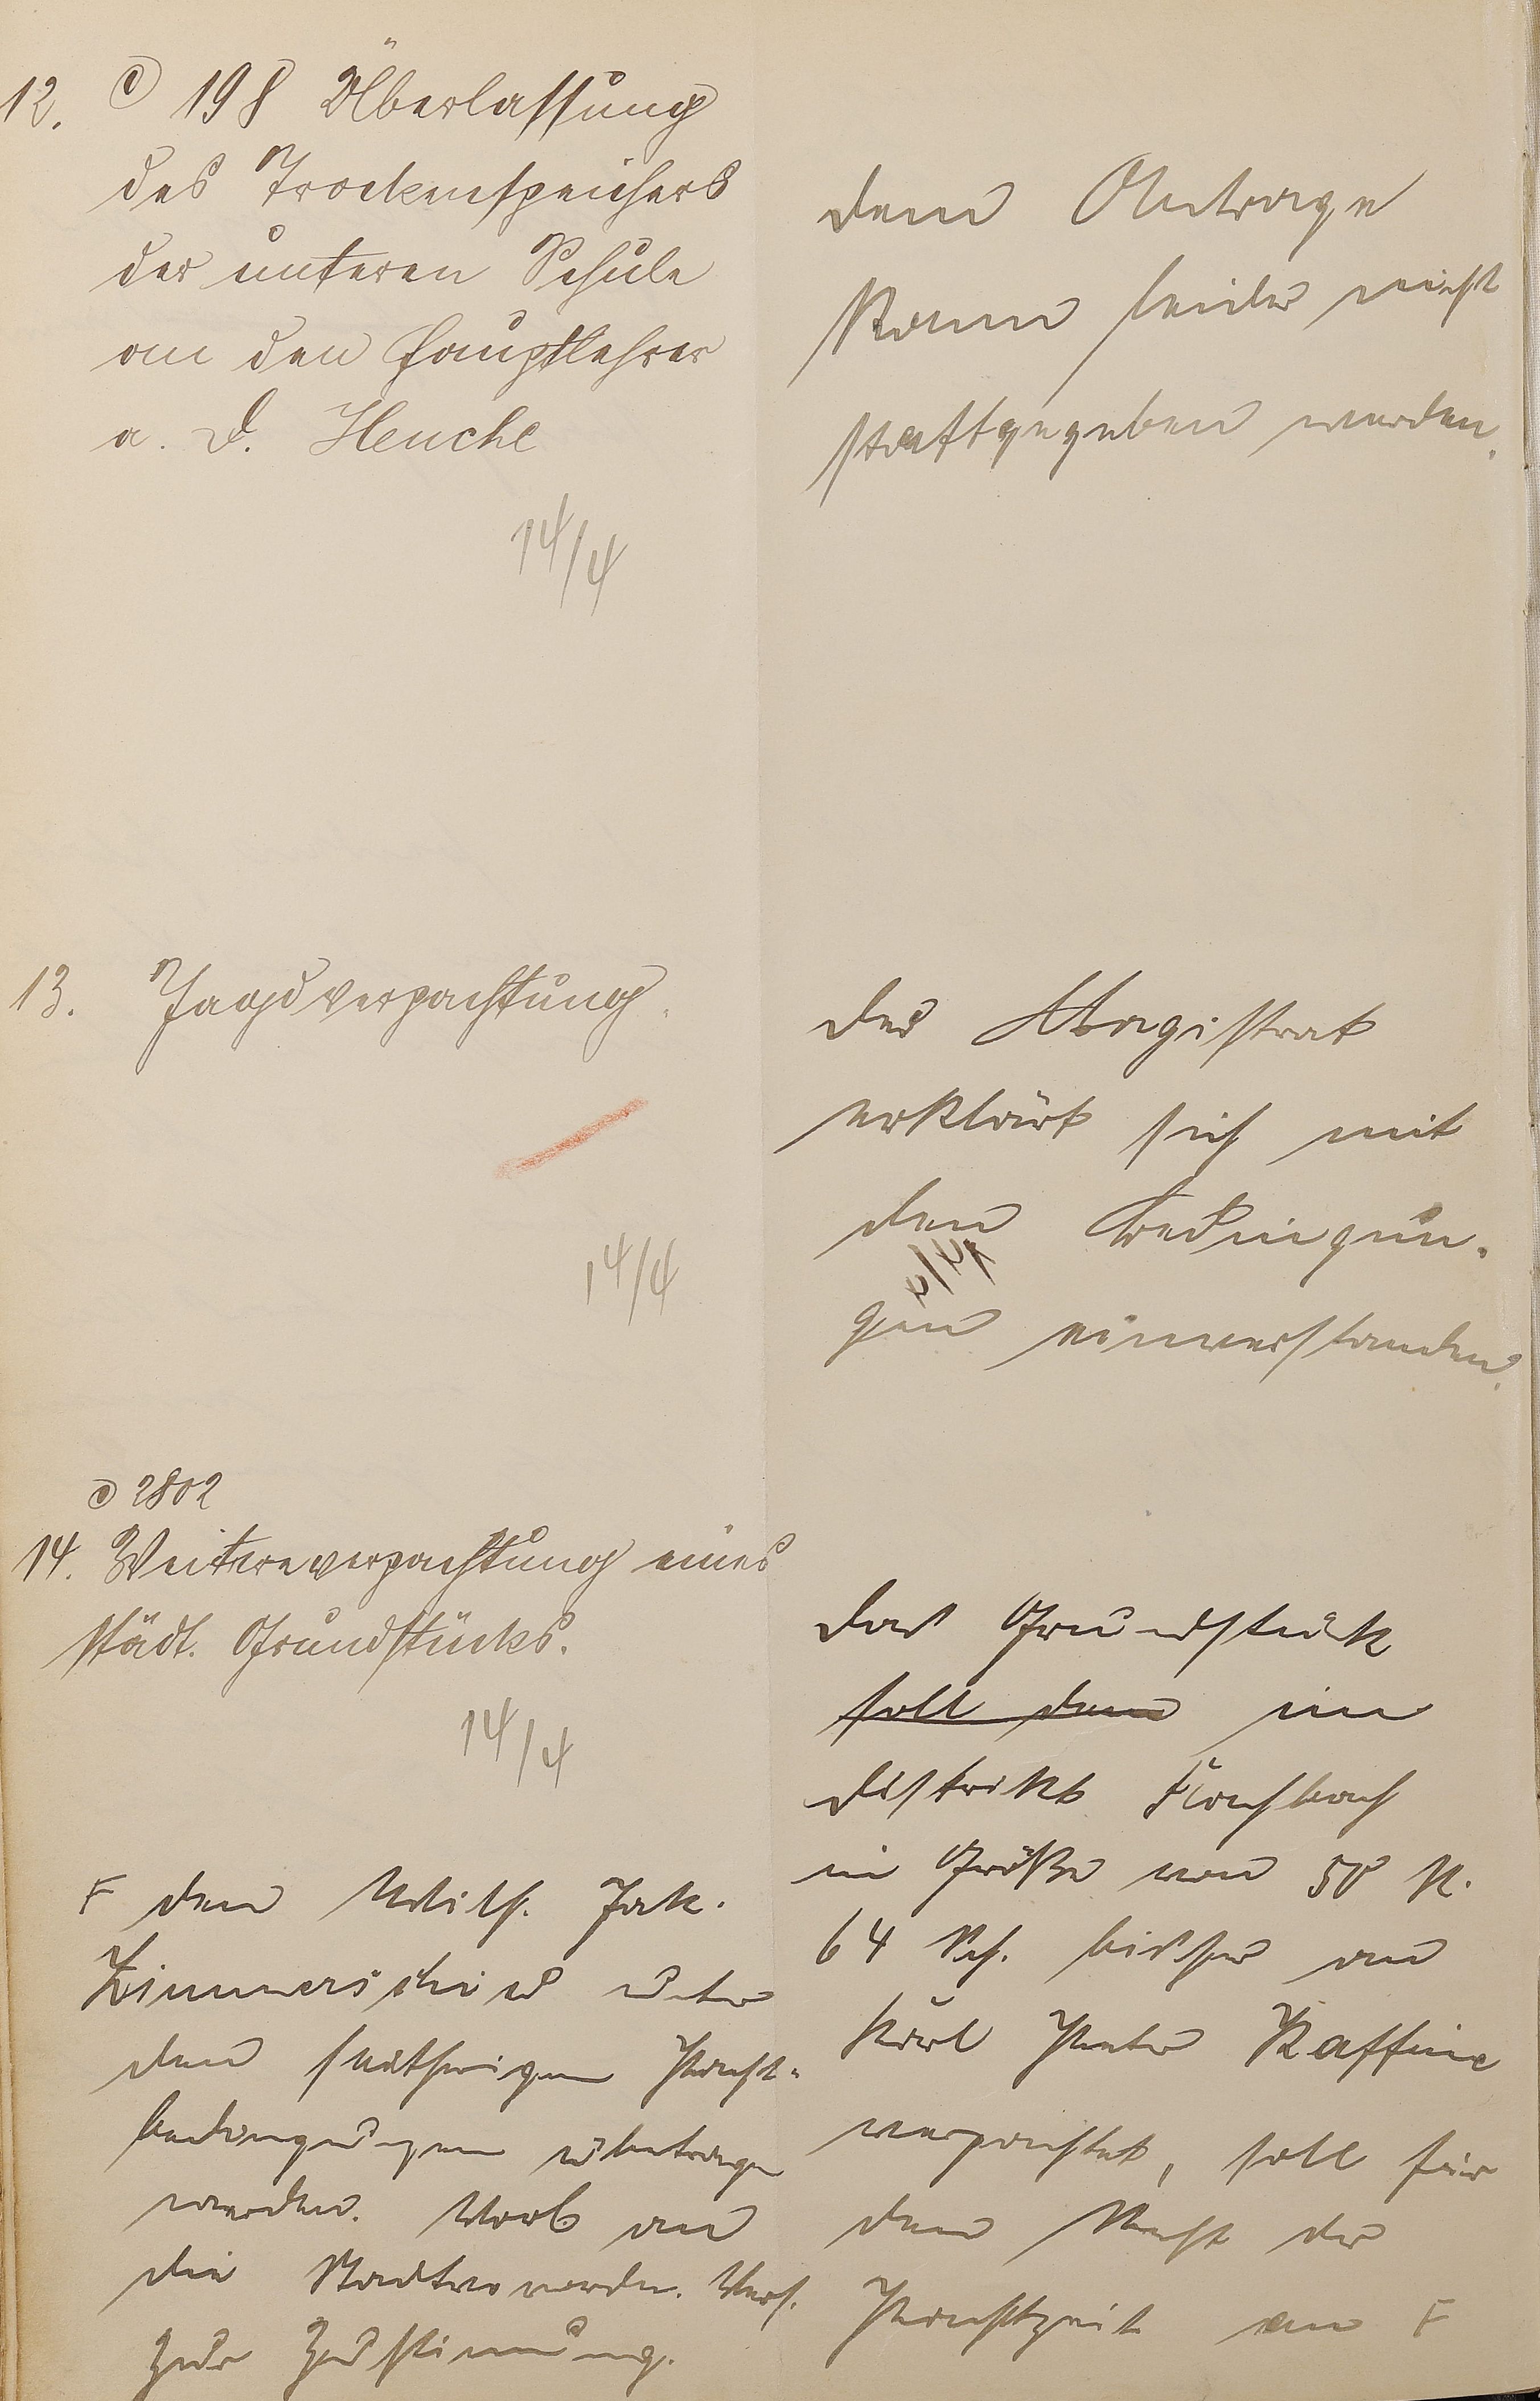 12. C 198 Überlassung
des Trockenspeichers
der unteren Schule
an den Hauptlehrer
a. D. Henche
14/4
Dem Antrage
kann leider nicht
stattgegeben werden.
13. Jagdverpachtung.
14/4
Der Magistrat
erklärt sich mit
den Bedingun-
gen einverstanden.
14/4
C 2802
14. Weiterverpachtung eines
städt. Grundstücks.
14/4
Das Grundstück
soll dem im
Distrikt Fachbach
in Größe von 58 R.
64 Sch. bisher an
Karl Peter Kaffine
verpachtet, soll für
den Rest der
Pachtzeit an F
F den Wilh. Jak.
Zimmerschied unter
den seitherigen Pacht-
bedingungen übertragen
werden. Vorl. an
die Stadtverordn. Vers.
zur Zustimmung.